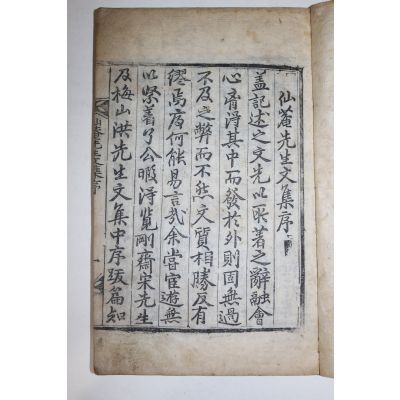 仙菴先生文集序
盖記述之文先以所著之辭融會
心齊得其中而發於外則固無過
不及之弊而不然文質相勝反有
繆焉庸何能易言哉余嘗宦遊無
以緊着了公暇得覧剛齋宋先生
及梅山洪先生文集中序跋篇知
仙菴先生文集序